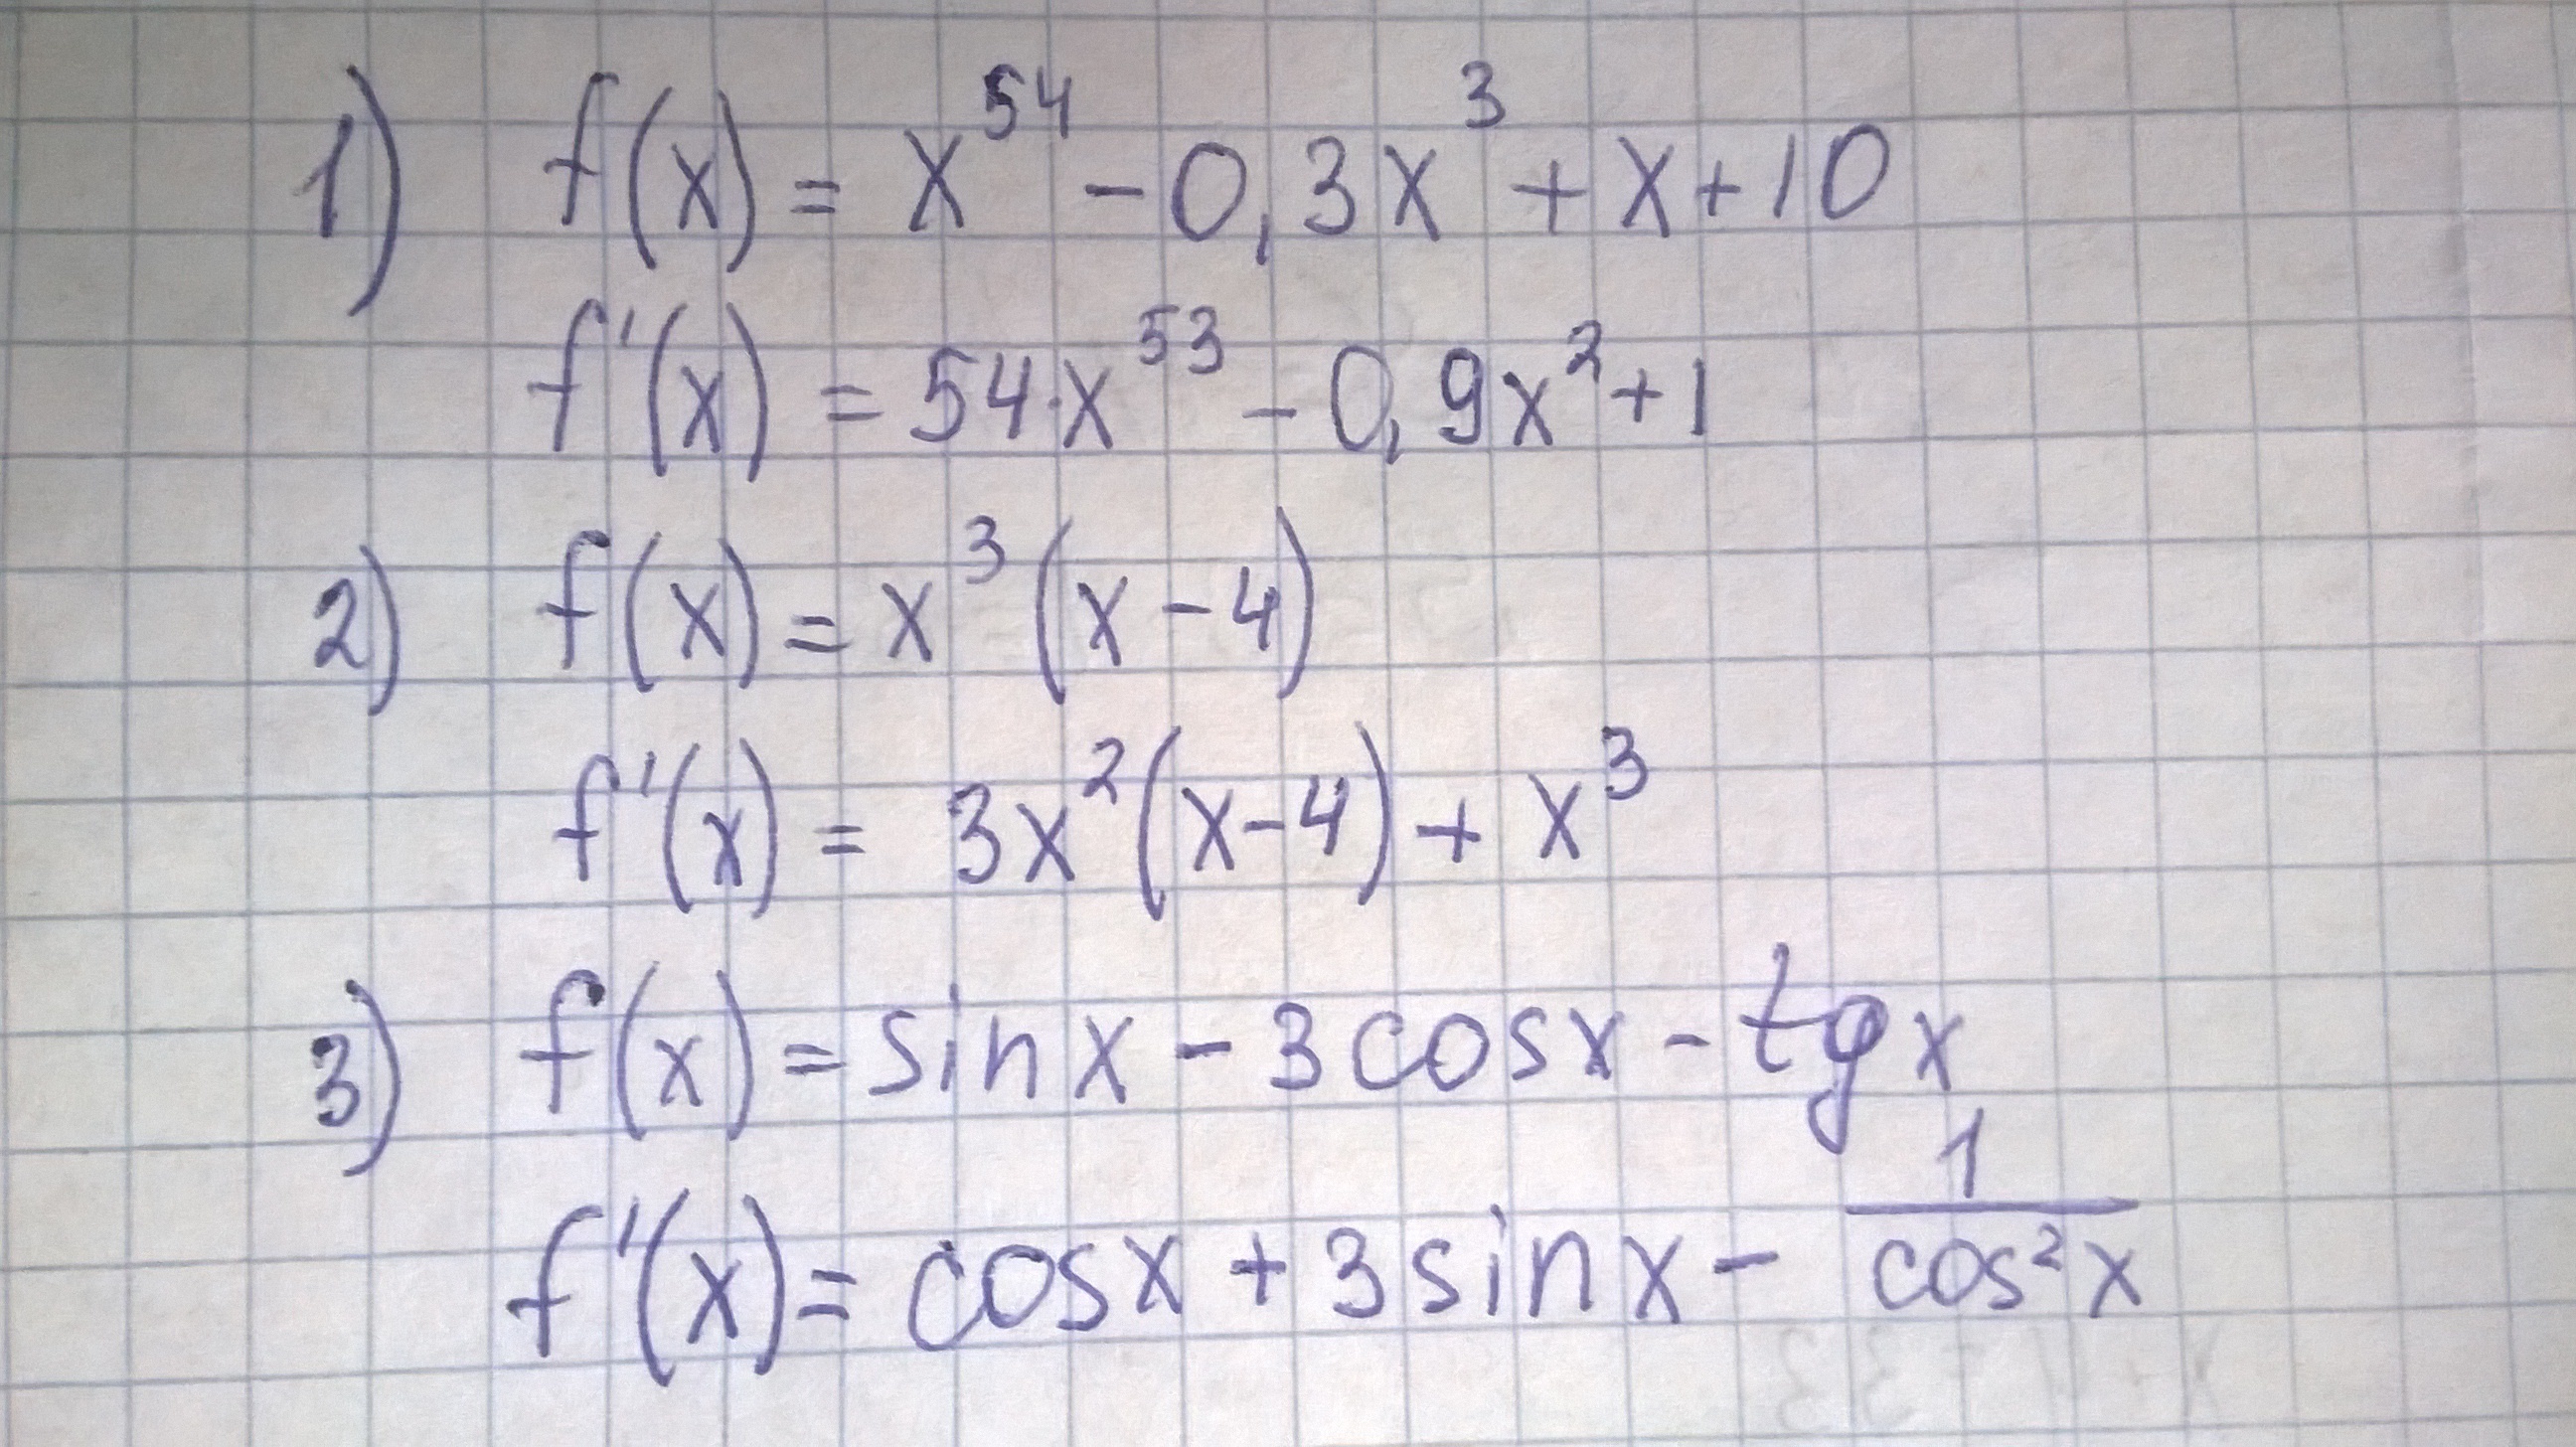 1) f(x) = x⁵⁴ - 0,3x³ + x + 10
f'(x) = 54·x⁵³ - 0,9x² + 1
2) f(x) = x³(x - 4)
f'(x) = 3x²(x - 4) + x³
3) f(x) = sin x - 3 cos x - tg x
f'(x) = cos x + 3 sin x - 1/cos² x